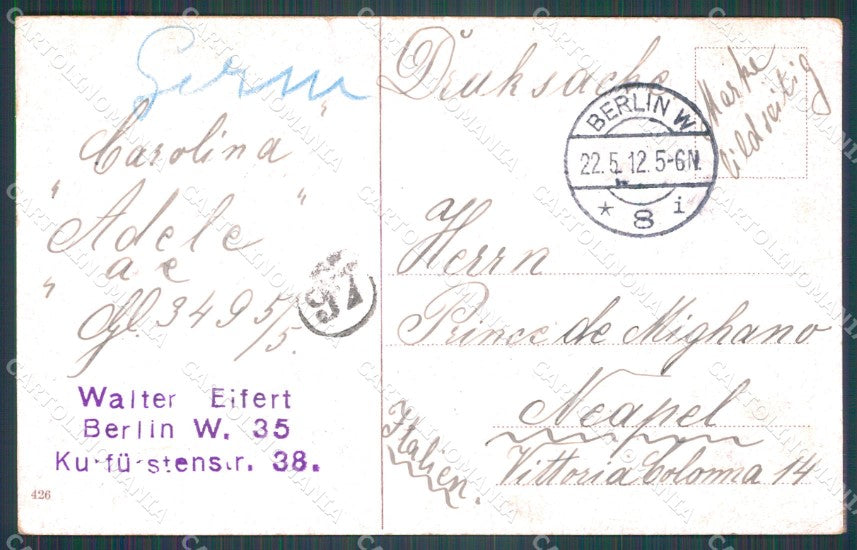 Germ
"
Carolina
" "
Adele
a e
"
Gl 3495/5.
97
Walter Eifert
Berlin W. 35
Kurfürstenstr. 38.
426
Druksache
Marke
bildseitig
BERLIN W
22.5.12.5-6N.
* 8 i
Herrn
Prince de Mighano
Neapel
Italien.
Vittoria Colonna 14
CARTOLINOMANIA